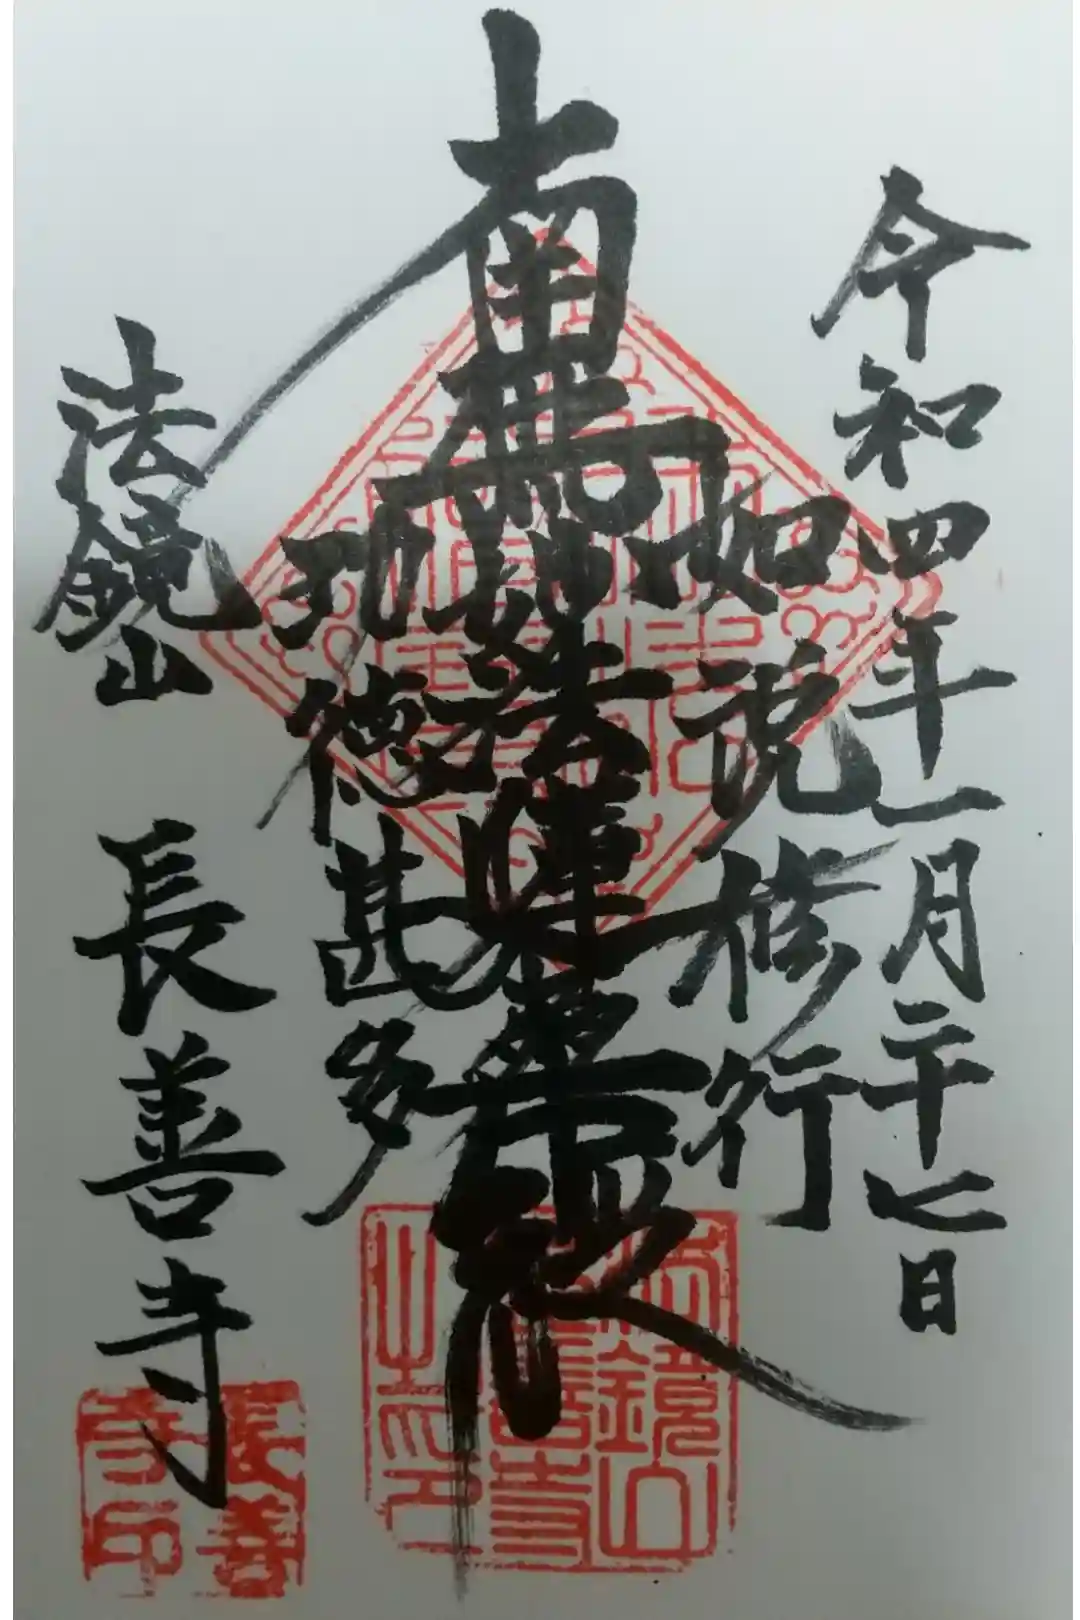 令和四年一月二十七日
如説修行
南無妙法蓮華経
功徳甚多
法鏡山 長善寺
法鏡山
長善寺
之印
長善
寺印